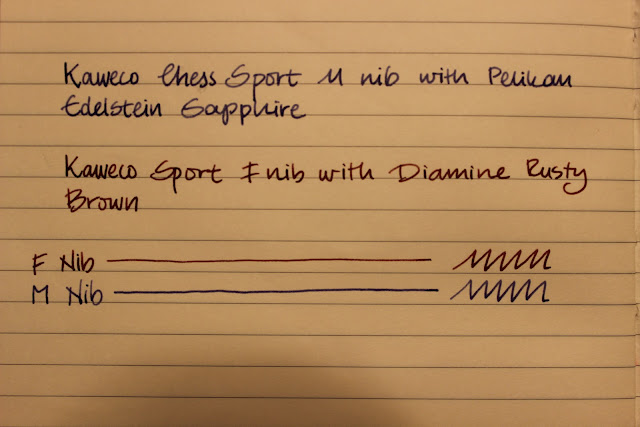 Kaweco Chess Sport M nib with Pelikan
Edelstein Sapphire
Kaweco Sport F nib with Diamine Rusty
Brown
F Nib
M Nib